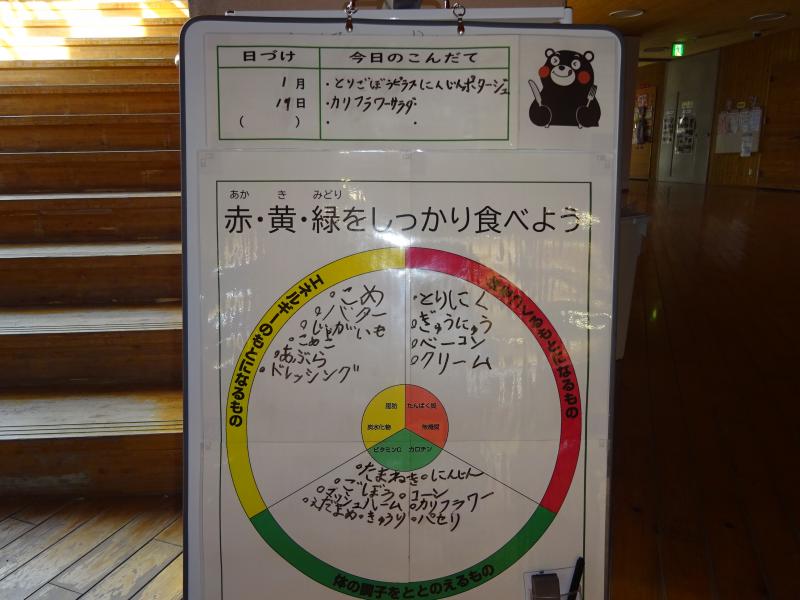 日づけ 今日のこんだて
1月 ・とりごぼうピラフ・にんじんポタージュ
19日 ・カリフラワーサラダ
( ) ・ ・
あか き みどり
赤・黄・緑をしっかり食べよう
エネルギーのもとになるもの
こめ
バター
じゃがいも
こめこ
あぶら
ドレッシング
とりにく
ぎゅうにゅう
ベーコン
クリーム
脂肪 たんぱく質
炭水化物 無機質
ビタミンC カロテン
たまねぎ にんじん
ごぼう コーン
マッシュルーム カリフラワー
えだまめ きゅうり パセリ
体の調子をととのえるもの